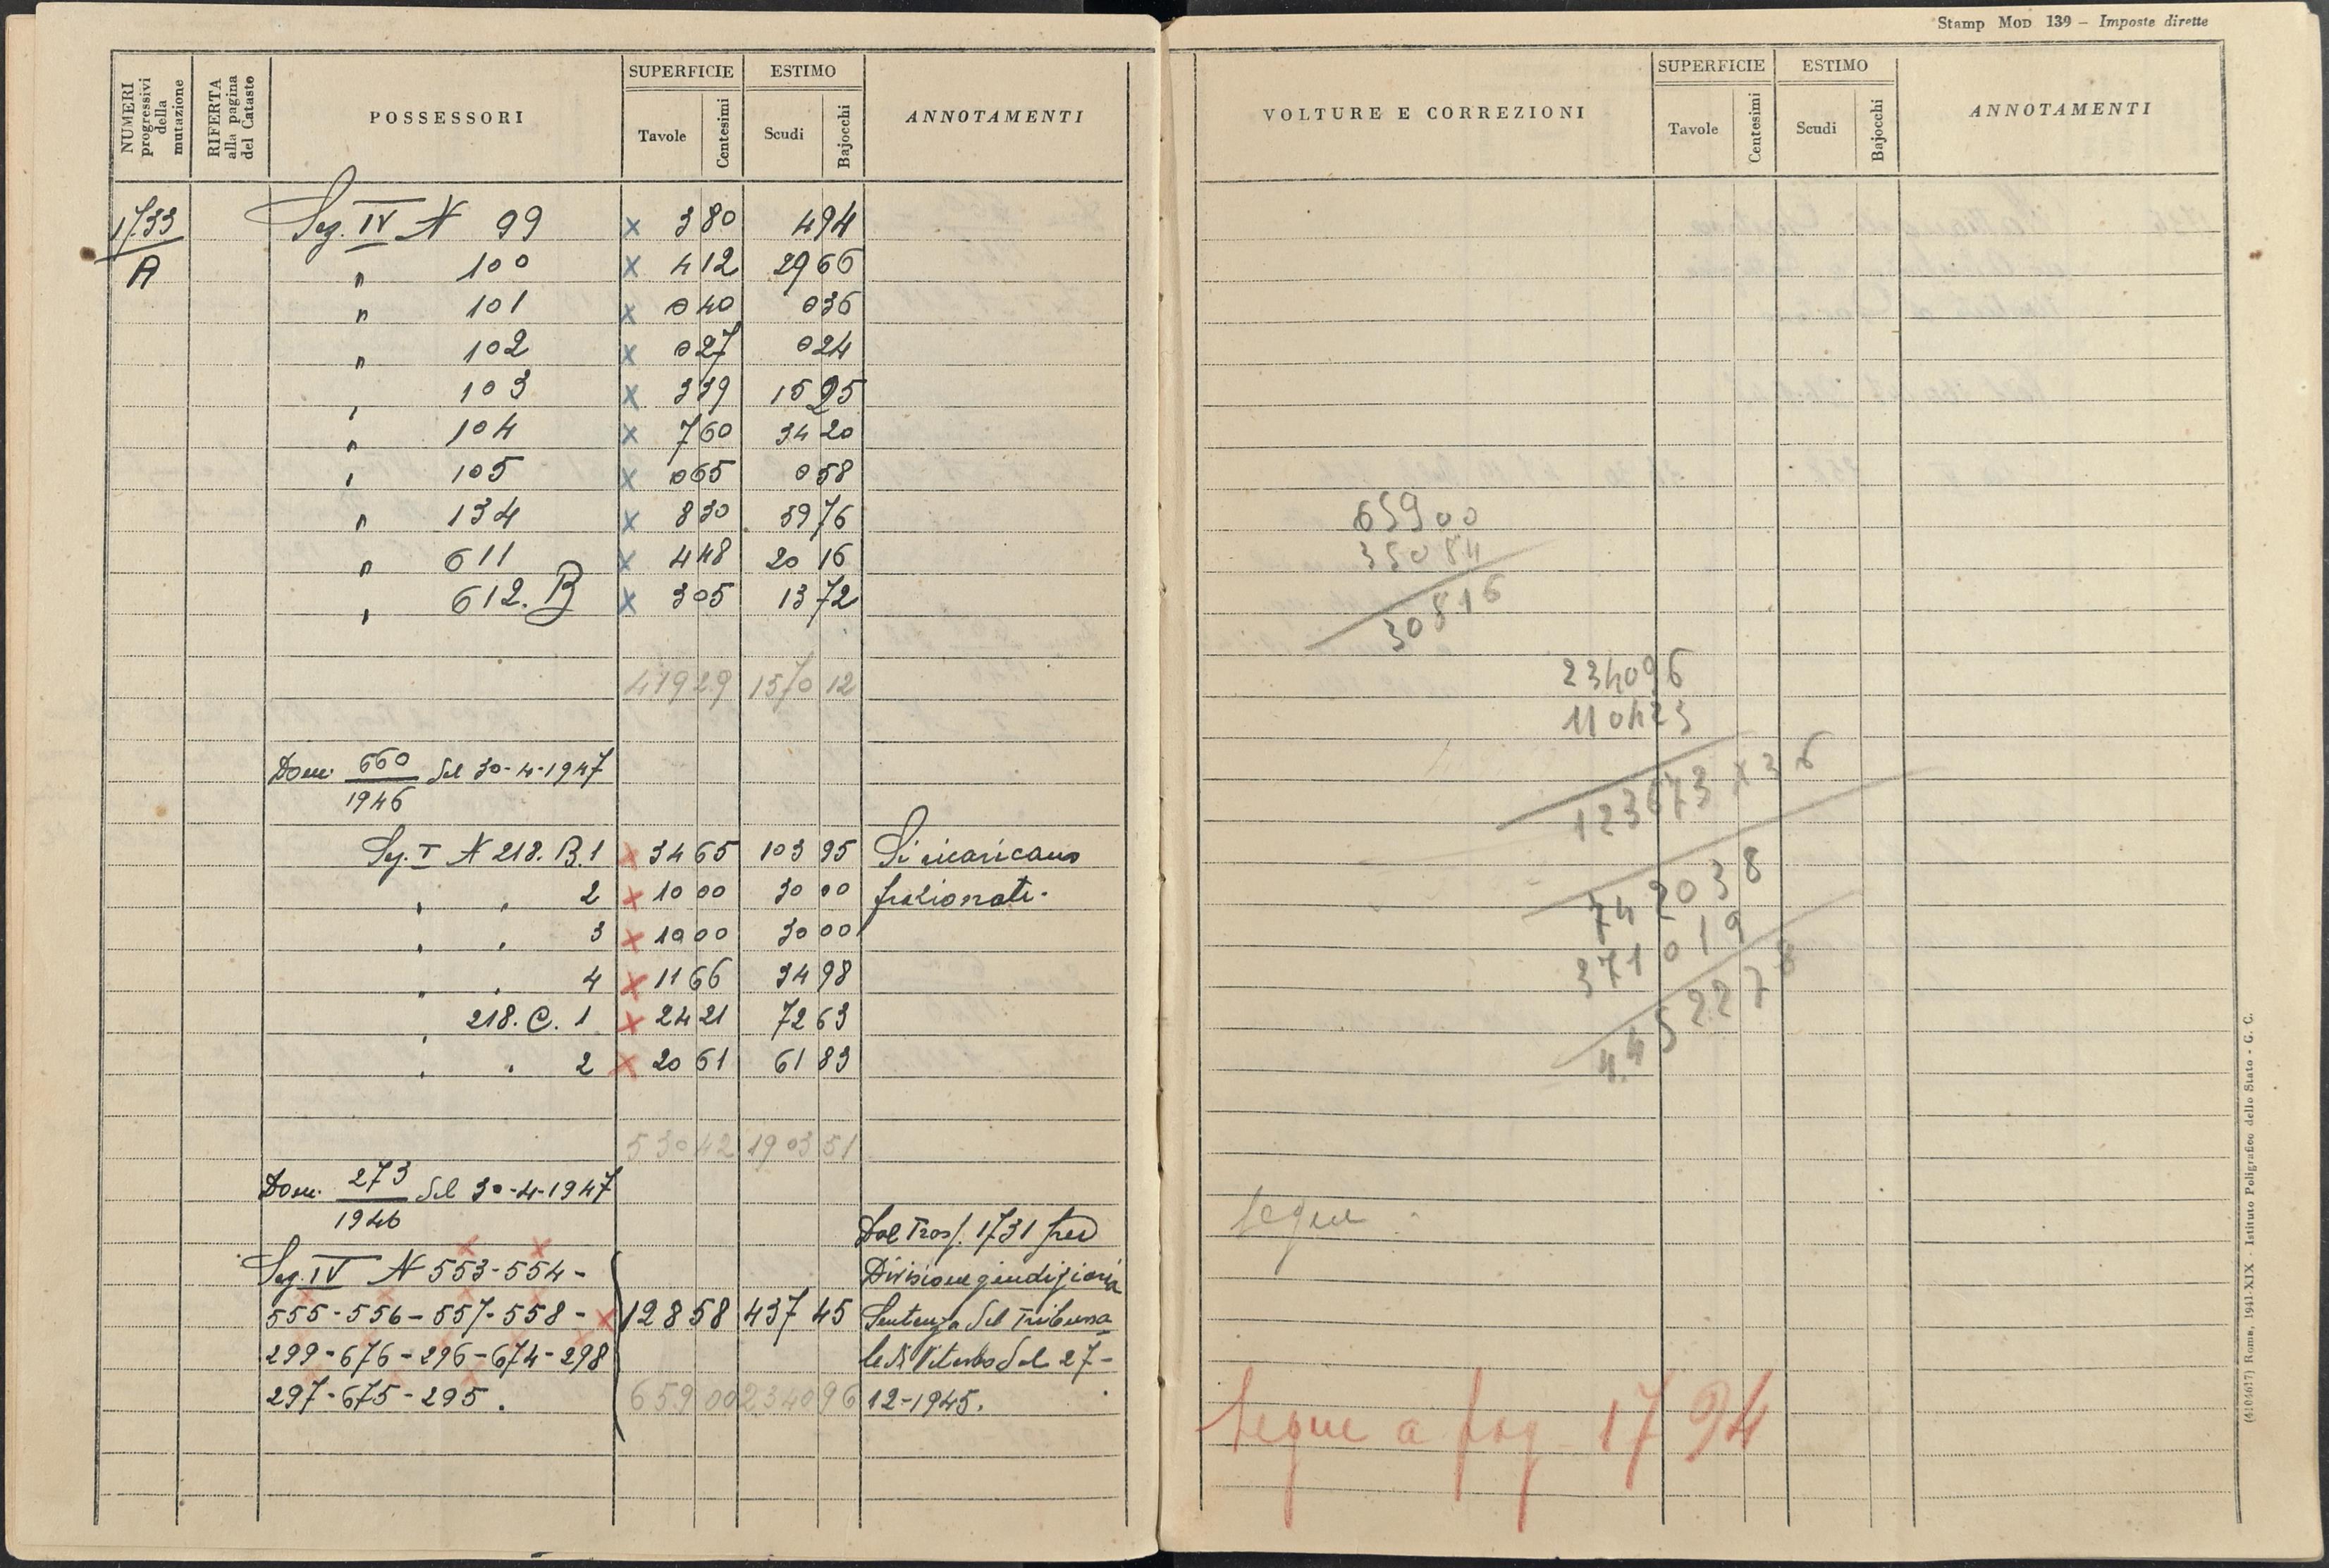 NUMERI progressivi della mutazione
RIFERTA alla pagina del Catasto
POSSESSORI
SUPERFICIE
Tavole
Centesimi
ESTIMO
Scudi
Bajocchi
ANNOTAMENTI
1733
A
Seg. IV N 99 x 3 80 4 94
" 100 x 4 12 29 66
" 101 x 0 40 0 36
" 102 x 0 27 0 24
" 103 x 3 39 15 25
" 104 x 7 60 34 20
" 105 x 0 65 0 58
" 134 x 8 30 59 76
" 611 x 4 48 20 16
" 612. B x 3 05 13 72
419 29 1570 12
Dom. 660 del 30-4-1947
1946
Seg. I N 218. B. 1 x 34 65 103 95 Si ricaricano
" " 2 x 10 00 30 00 frazionati.
" " 3 x 10 00 30 00
" " 4 x 11 66 34 98
" 218. C. 1 x 24 21 72 63
" " 2 x 20 61 61 83
530 42 1903 51
Dom. 273 del 30-4-1947
1946
Dal Trasf. 1731 per
Seg. IV N 553-554- Divisione giudiziaria
555-556-557-558- x 128 58 437 45 Sentenza del Tribuna
299-676-296-674-298 le di Viterbo del 27-
297-675-295. 659 00 2340 96 12-1945.
Stamp Mod 139 – Imposte dirette
VOLTURE E CORREZIONI
SUPERFICIE
Tavole
Centesimi
ESTIMO
Scudi
Bajocchi
ANNOTAMENTI
65900
35084
30816
234096
110423
123673 x 36
742038
371019
4.452278
segue
Segue a pag 1794
(4104617) Roma, 1941-XIX - Istituto Poligrafico dello Stato - G. C.